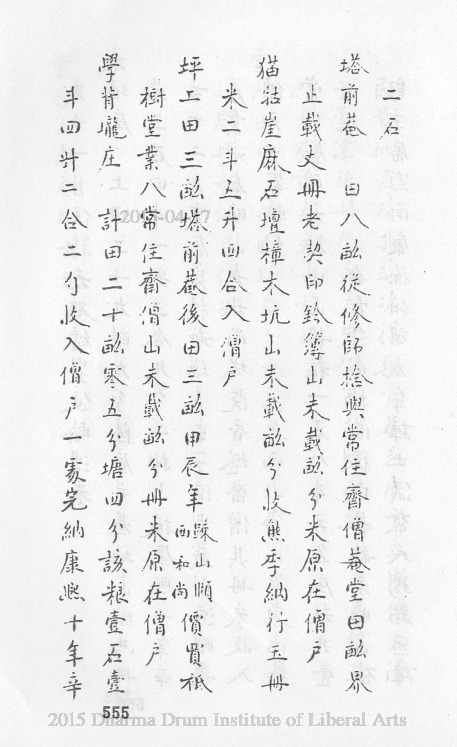 二石
塔前菴 田八畝從修師捨與常住齋僧菴堂田畝界
止載丈冊老契印鈐簿山未載畝分米原在僧戶
猫牯崖麻石壇樟木坑山未載畝分收熊季納行玉冊
米二斗五升四合入僧戶
坪工田三畝塔前菴後田三畝甲辰年踈山順西和尚價買祇
樹堂業八常住齋僧山未載畝分冊米原在僧戶
學背壠庄 計田二十畝零五分塘四分該粮壹石壹
斗四升二合二勺收入僧戶一家完納康熙十年辛
555
2015 Dharma Drum Institute of Liberal Arts